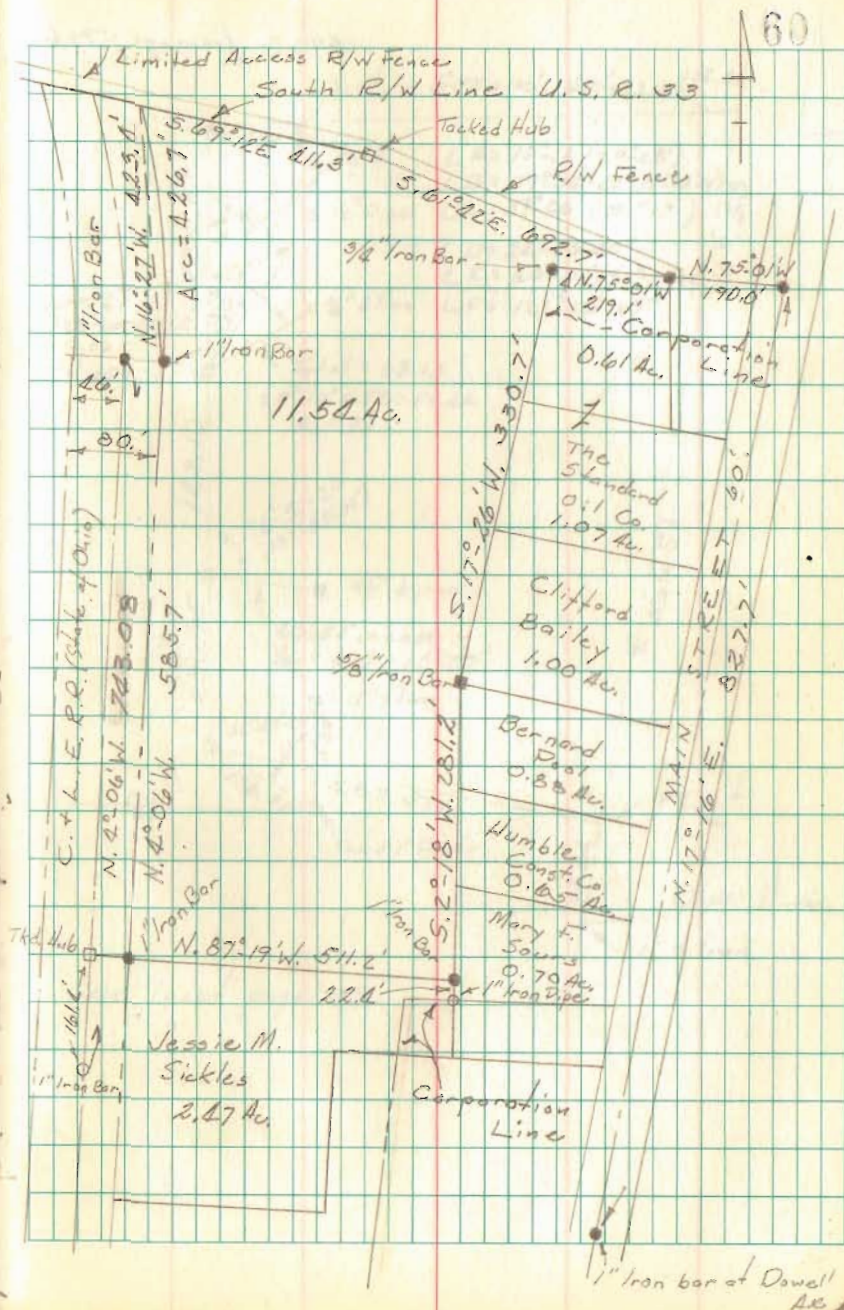 60
Limited Access R/W Fence
South R/W Line U. S. R. 33
S. 69°-12'E. 411.3'
Tacked Hub
S. 61°-42'E. 692.7'
R/W Fence
3/4" Iron Bar
N. 75°-01'W
219.1'
N. 75°-01'W
190.0'
Corporation
Line
0.61 Ac.
1" Iron Bar
N. 16°-27'W. 423.4'
Arc = 426.7'
1" Iron Bar
46.'
80.'
11.54 Ac.
S. 17°-26'W. 330.7'
The
Standard
Oil Co.
1.07 Ac.
Clifford
Bailey
1.00 Ac.
5/8" Iron Bar
Bernard
Pool
0.88 Ac.
Humble
Const. Co.
0.65 Ac.
Mary F.
Sours
0.70 Ac.
MAIN STREET 60'
N. 17°-16'E. 827.7'
C. & L. E. R.R. (State of Ohio)
N. 4°-06'W. 743.08
N. 4°-06'W. 585.7'
S. 2°-18'W. 281.2'
1" Iron Bar
1" Iron Bar
Tkd. Hub
N. 87°-19'W. 511.2'
22.4'
1" Iron Pipe
161.2'
1" Iron Bar
Jessie M.
Sickles
2.47 Ac.
Corporation
Line
1" Iron bar at Dowell
Ave